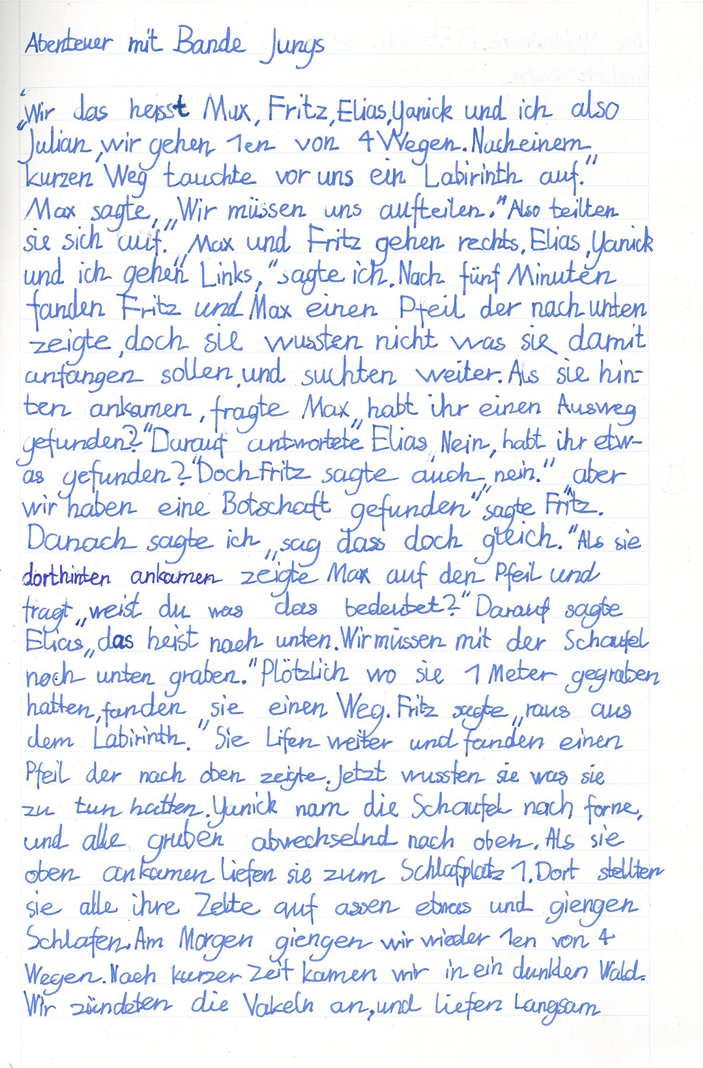 Abenteuer mit Bande Jungs
"Wir das heisst Max, Fritz, Elias, Yanick und ich also
Julian, wir gehen 1en von 4 Wegen. Nach einem
kurzen Weg tauchte vor uns ein Labirinth auf."
Max sagte, „Wir müssen uns aufteilen." Also teilten
sie sich auf. „Max und Fritz gehen rechts, Elias, Yanick
und ich gehen Links," sagte ich. Nach fünf Minuten
fanden Fritz und Max einen Pfeil der nach unten
zeigte, doch sie wussten nicht was sie damit
anfangen sollen, und suchten weiter. Als sie hin-
ten ankamen, fragte Max „habt ihr einen Ausweg
gefunden?" Darauf antwortete Elias „Nein, habt ihr etw-
as gefunden?" Doch Fritz sagte auch „nein." "aber
wir haben eine Botschaft gefunden" sagte Fritz.
Danach sagte ich „sag dass doch gleich." Als sie
dorthinten ankamen zeigte Max auf den Pfeil und
fragt „weist du was das bedeutet?" Darauf sagte
Elias „das heist nach unten. Wir müssen mit der Schaufel
nach unten graben." Plötzlich wo sie 1 Meter gegraben
hatten, fanden sie einen Weg. Fritz sagte „raus aus
dem Labirinth." Sie Lifen weiter und fanden einen
Pfeil der nach oben zeigte. Jetzt wussten sie was sie
zu tun hatten. Yanick nam die Schaufel nach forne,
und alle gruben abwechselnd nach oben. Als sie
oben ankamen liefen sie zum Schlafplatz 1. Dort stellten
sie alle ihre Zelte auf assen etwas und giengen
Schlafen. Am Morgen giengen wir wieder 1en von 4
Wegen. Nach kurzer Zeit kamen wir in ein dunklen Wald.
Wir zündeten die Vakeln an, und liefen Langsam